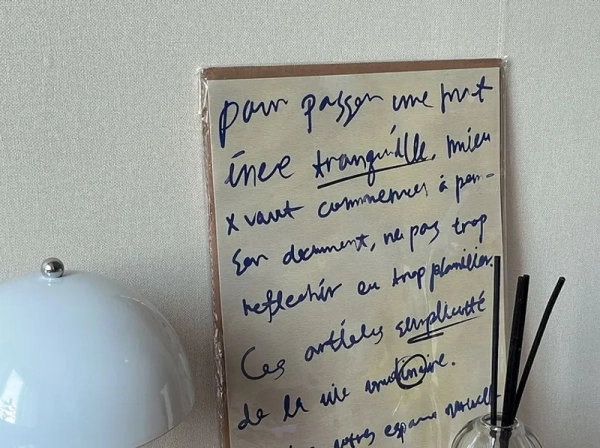 pour passer une mat
inee tranquille, mieu
x vaut commencer à pen-
ser doucement, ne pas trop
reflechir ou trop planifier.
Ces articles simplicité
de la vie
notres espace